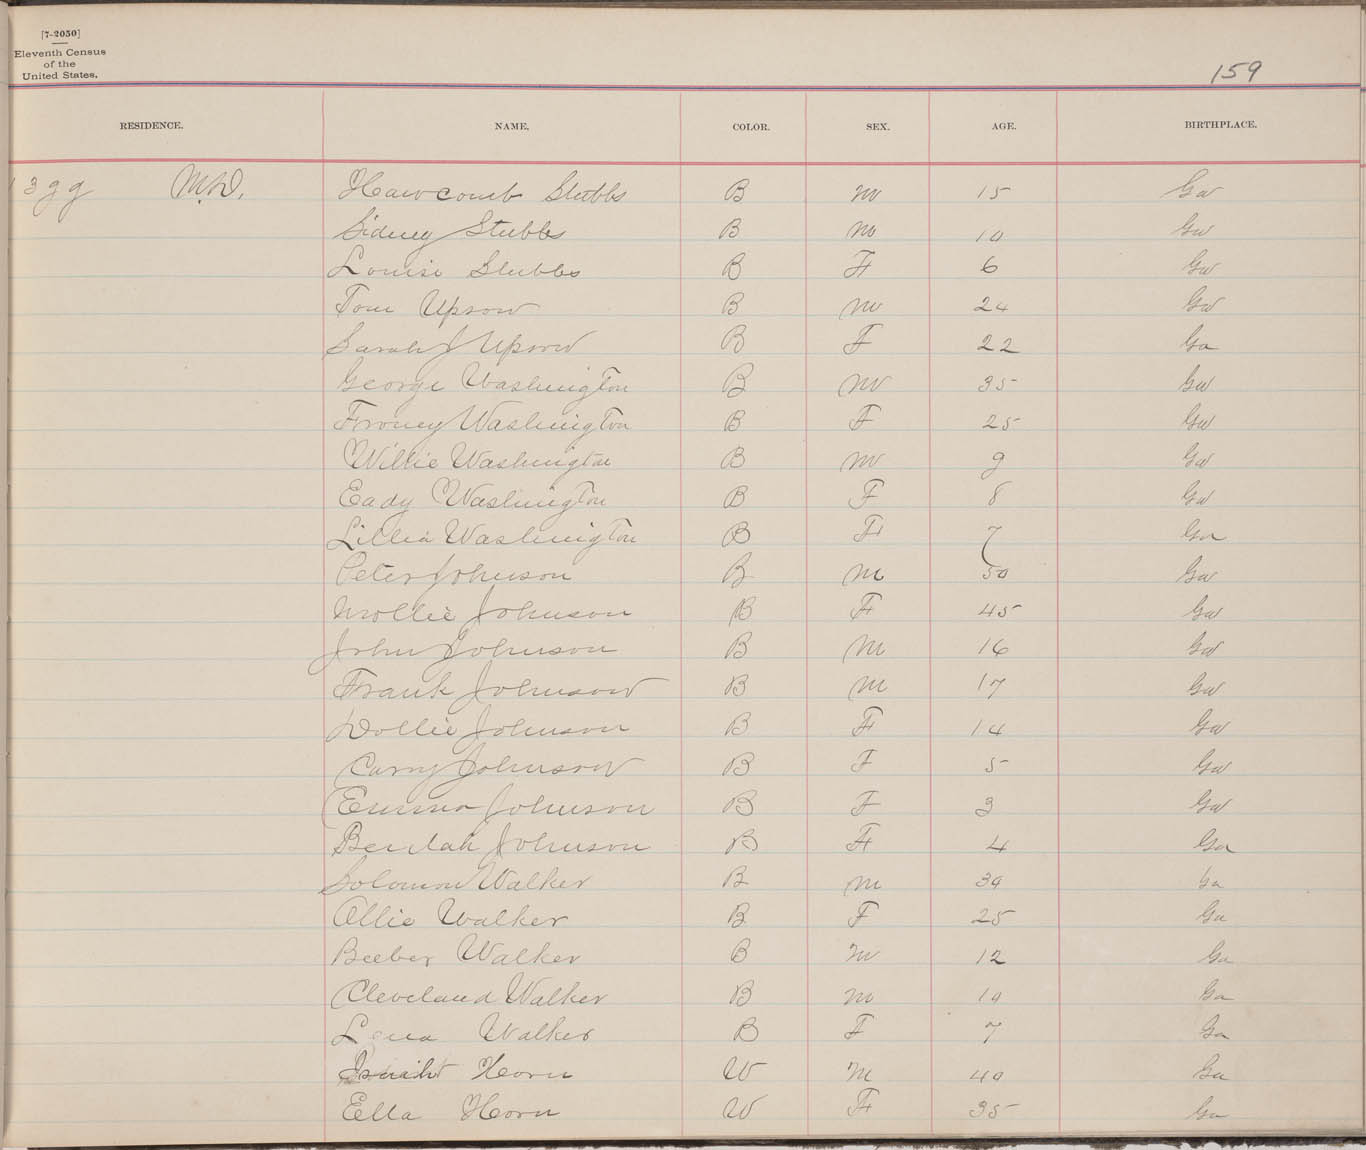 [7-2050]
Eleventh Census
of the
United States.
159
RESIDENCE. NAME. COLOR. SEX. AGE. BIRTHPLACE.
1399 M.D. Hawcomb Stubbs B M 15 Ga
Sidney Stubbs B M 10 Ga
Louise Stubbs B F 6 Ga
Tom Upsow B M 24 Ga
Sarah J Upsow B F 22 Ga
George Washington B M 35 Ga
Froney Washington B F 25 Ga
Willie Washington B M 9 Ga
Eady Washington B F 8 Ga
Lillia Washington B F 7 Ga
Peter Johnson B M 50 Ga
Mollie Johnson B F 45 Ga
John Johnson B M 16 Ga
Frank Johnson B M 17 Ga
Dollie Johnson B F 14 Ga
Carry Johnson B F 5 Ga
Emma Johnson B F 3 Ga
Beulah Johnson B F 4 Ga
Solomon Walker B M 30 Ga
Ollie Walker B F 25 Ga
Beeber Walker B M 12 Ga
Cleveland Walker B M 10 Ga
Lena Walker B F 7 Ga
Horn W M 40 Ga
Ella Horn W F 35 Ga